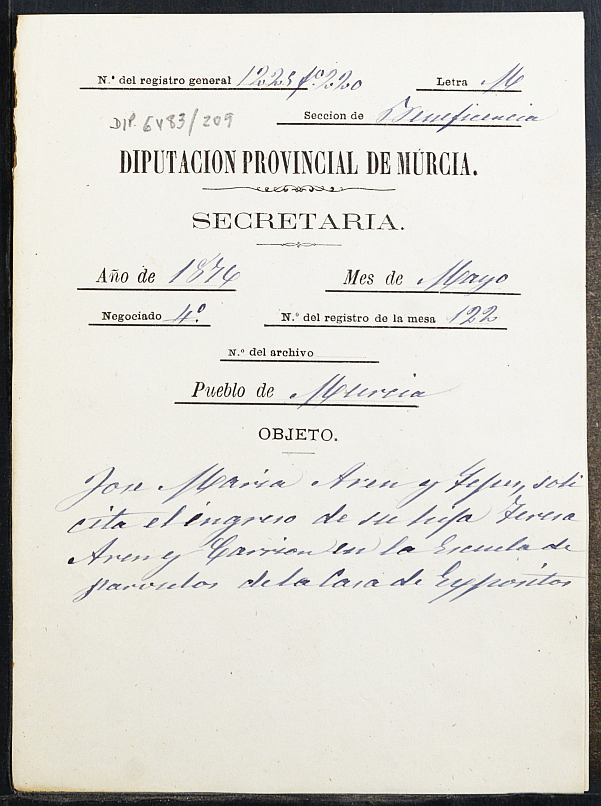 N.º del registro general 1225 fº 220 Letra M
DIP. 6483/209
Seccion de Beneficencia
DIPUTACION PROVINCIAL DE MÚRCIA.
SECRETARIA.
Año de 1876 Mes de Mayo
Negociado 4º N.º del registro de la mesa 122
N.º del archivo
Pueblo de Murcia
OBJETO.
Jose Maria Aren y soli
cita el ingreso de su hija Teresa
Aren y Carrion en la Escuela de
parvulos de la Casa de Expositos